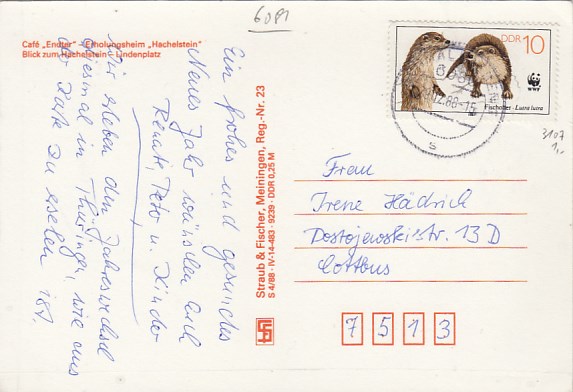 6081
Café „Endter“ · Erholungsheim „Hachelstein“
Blick zum Hachelstein · Lindenplatz
Ein frohes und gesundes
Neues Jahr wünschen Euch
Renate, Peter u. Kinder
Wir erleben den Jahreswechsel
diesmal in Thüringen, wie aus
der Karte zu ersehen ist.
Straub & Fischer, Meiningen, Reg.-Nr. 23
S 4/88 · IV-14-483 · 9239 · DDR 0,25 M
DDR 10
WWF
Fischotter · Lutra lutra
12.88-15
s
3107
1,-
Frau
Irene Hädrich
Dostojewskistr. 13 D
Cottbus
7513